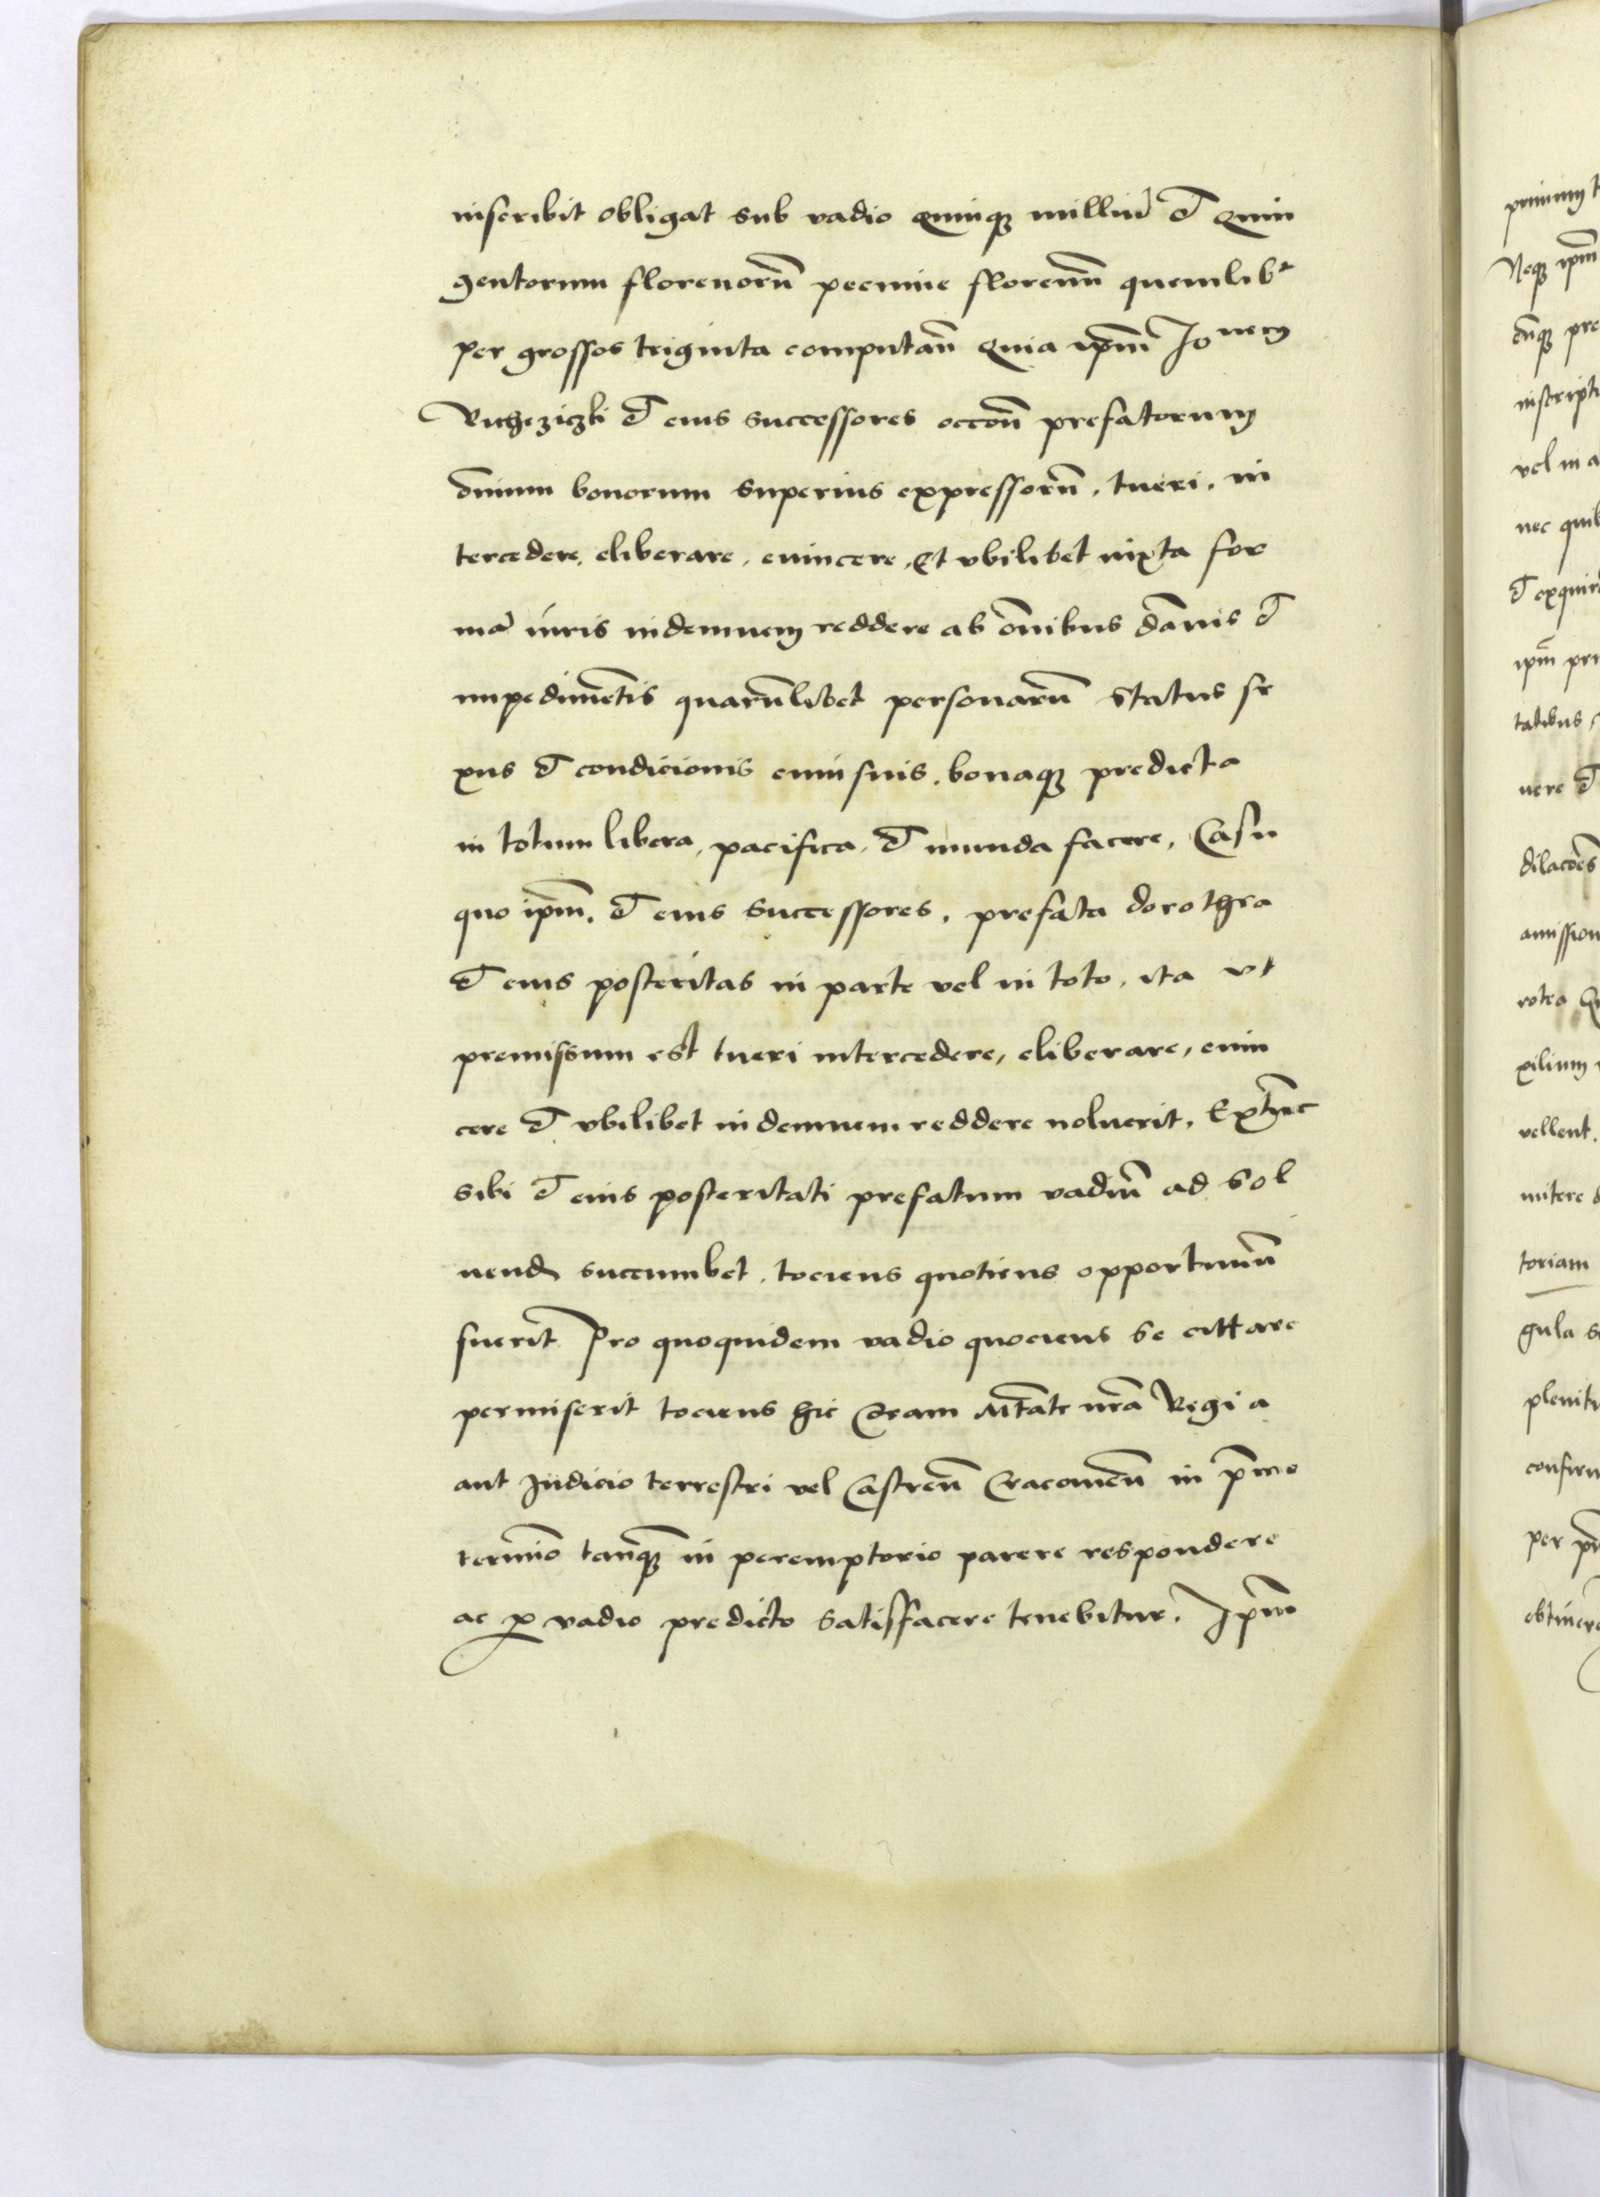 inscribit obligat sub vadio quinq₃ milliū et Quin
gentorum florenorū pecunie florenū quemlibꝫ
per grossos triginta computañ Quia ipm̄ Jo
et eius successores occōn prefatorum
om̄ium bonorum superius expressorū, tueri, in
tercedere, eliberare, euincere, Et vbilibet iuxta for
mā iuris indemnem reddere ab om̄ibus dānis et
impedimētis quarūlibet personarū status se
xus et condicionis cuiusuis, bonaq₃ predicta
in totum libera, pacifica, et munda facere, Casu
quo ipm̄, et eius successores, prefata dorothea
et eius posteritas in parte vel in toto, ita vt
premissum est tueri intercedere, eliberare, euin
cere et vbilibet indemnem reddere noluerit, Extūc
sibi et eius posteritati prefatum vadiū ad sol
uend succumbet, tociens quotiens opportunū
fuerit Pro quoquidem vadio quociens se cittare
permiserit tociens hic Coram Mtāte nr̄a Regia
aut Judicio terrestri vel Castreñ Cracouieñ in pīmo
termīo tanq₃ in peremptorio parere respondere
ac ꝓ vadio predicto satisfacere tenebitur, Ipm̄
primum
Neq₃ ipm̄
vel in a
et exquir
ipm̄
tatibus
dilacōes
vellent.
toriam
gula
per